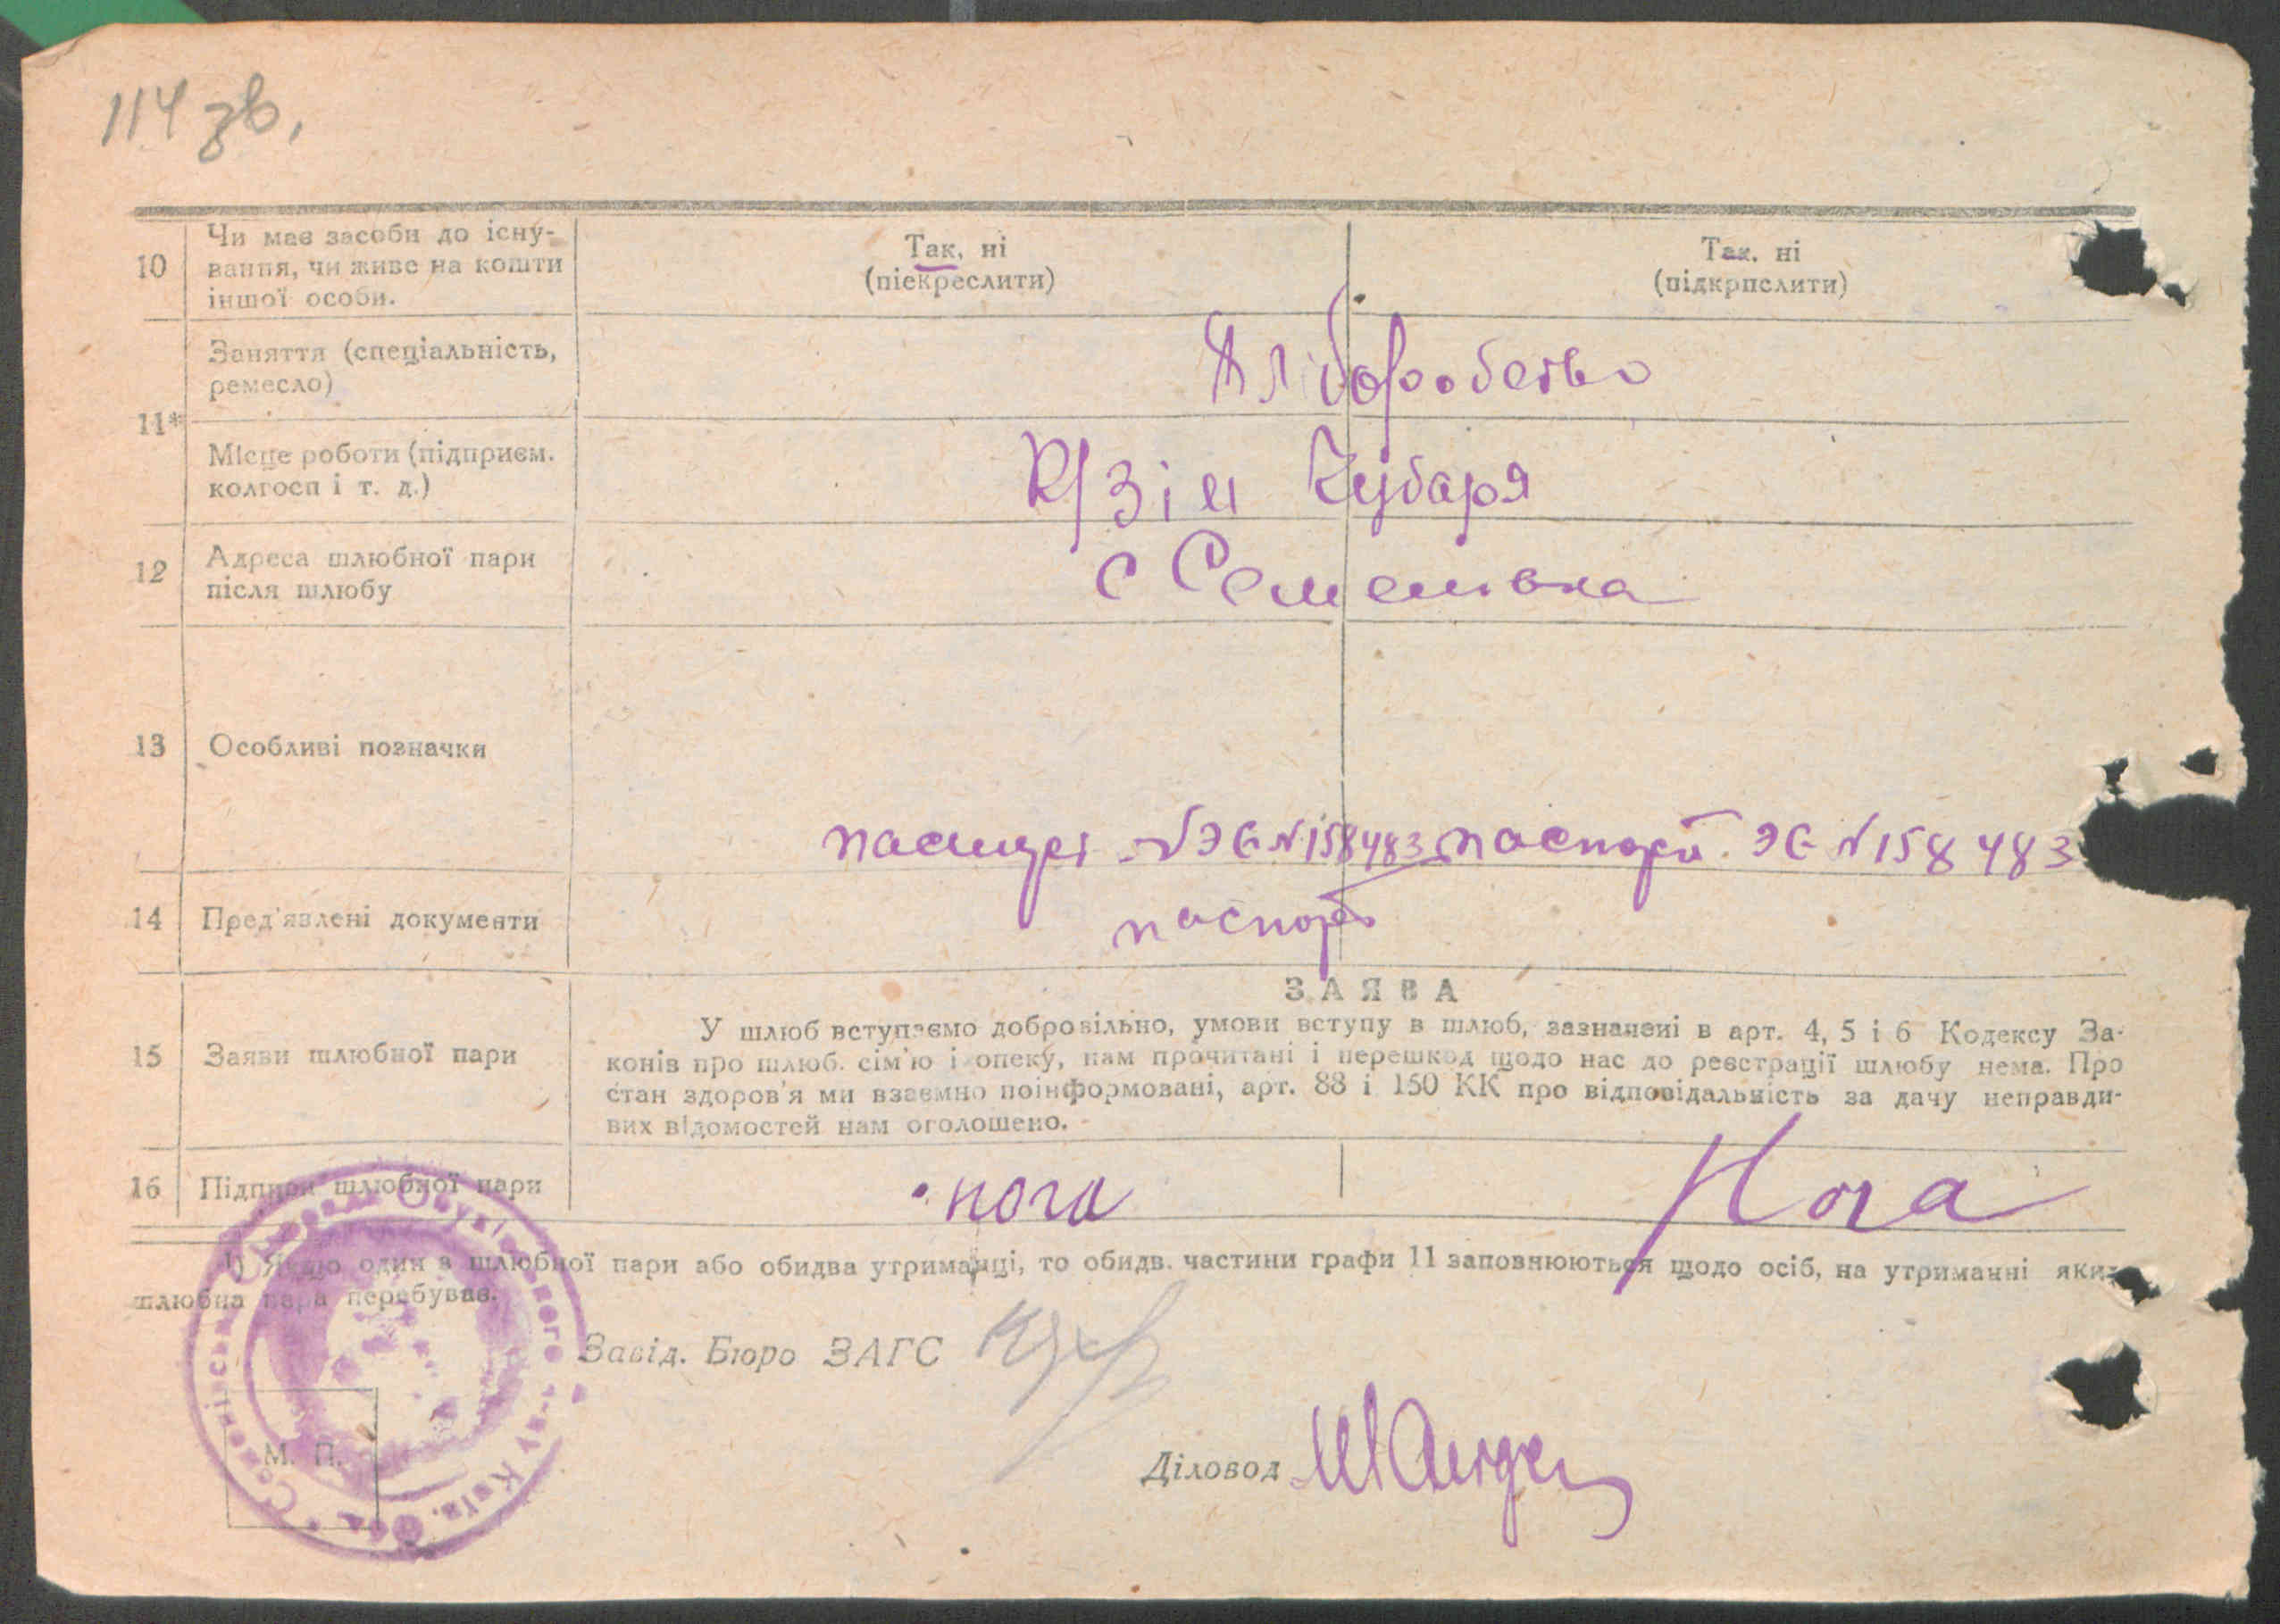 114 зв.
10 Чи має засоби до існу-
вання, чи живе на кошти
іншої особи.
Так, ні
(піекреслити)
Так. ні
(підкрпслити)
11*
Заняття (спеціальність,
ремесло)
Хліборобство
Місце роботи (підприєм.
колгосп і т. д.)
К/З ім Чубаря
12 Адреса шлюбної пари
після шлюбу
с Семенівка
13 Особливі позначки
ЭG №158483 паспорт ЭG №158483
14 Пред'явлені документи
паспорт
ЗАЯВА
15 Заяви шлюбної пари
У шлюб вступаємо добровільно, умови вступу в шлюб, зазначені в арт. 4, 5 і 6 Кодексу За-
конів про шлюб. сім'ю і опеку, нам прочитані і перешкод щодо нас до реєстрації шлюбу нема. Про
стан здоров'я ми взаємно поінформовані, арт. 88 і 150 КК про відповідальність за дачу неправди-
вих відомостей нам оголошено.
16 Підписи шлюбної пари
нога
Нога
1) Якщо один з шлюбної пари або обидва утриманці, то обидв. частини графи 11 заповнюються щодо осіб, на утриманні яких
шлюбна пара перебуває.
Завід. Бюро ЗАГС
М. П.
Діловод